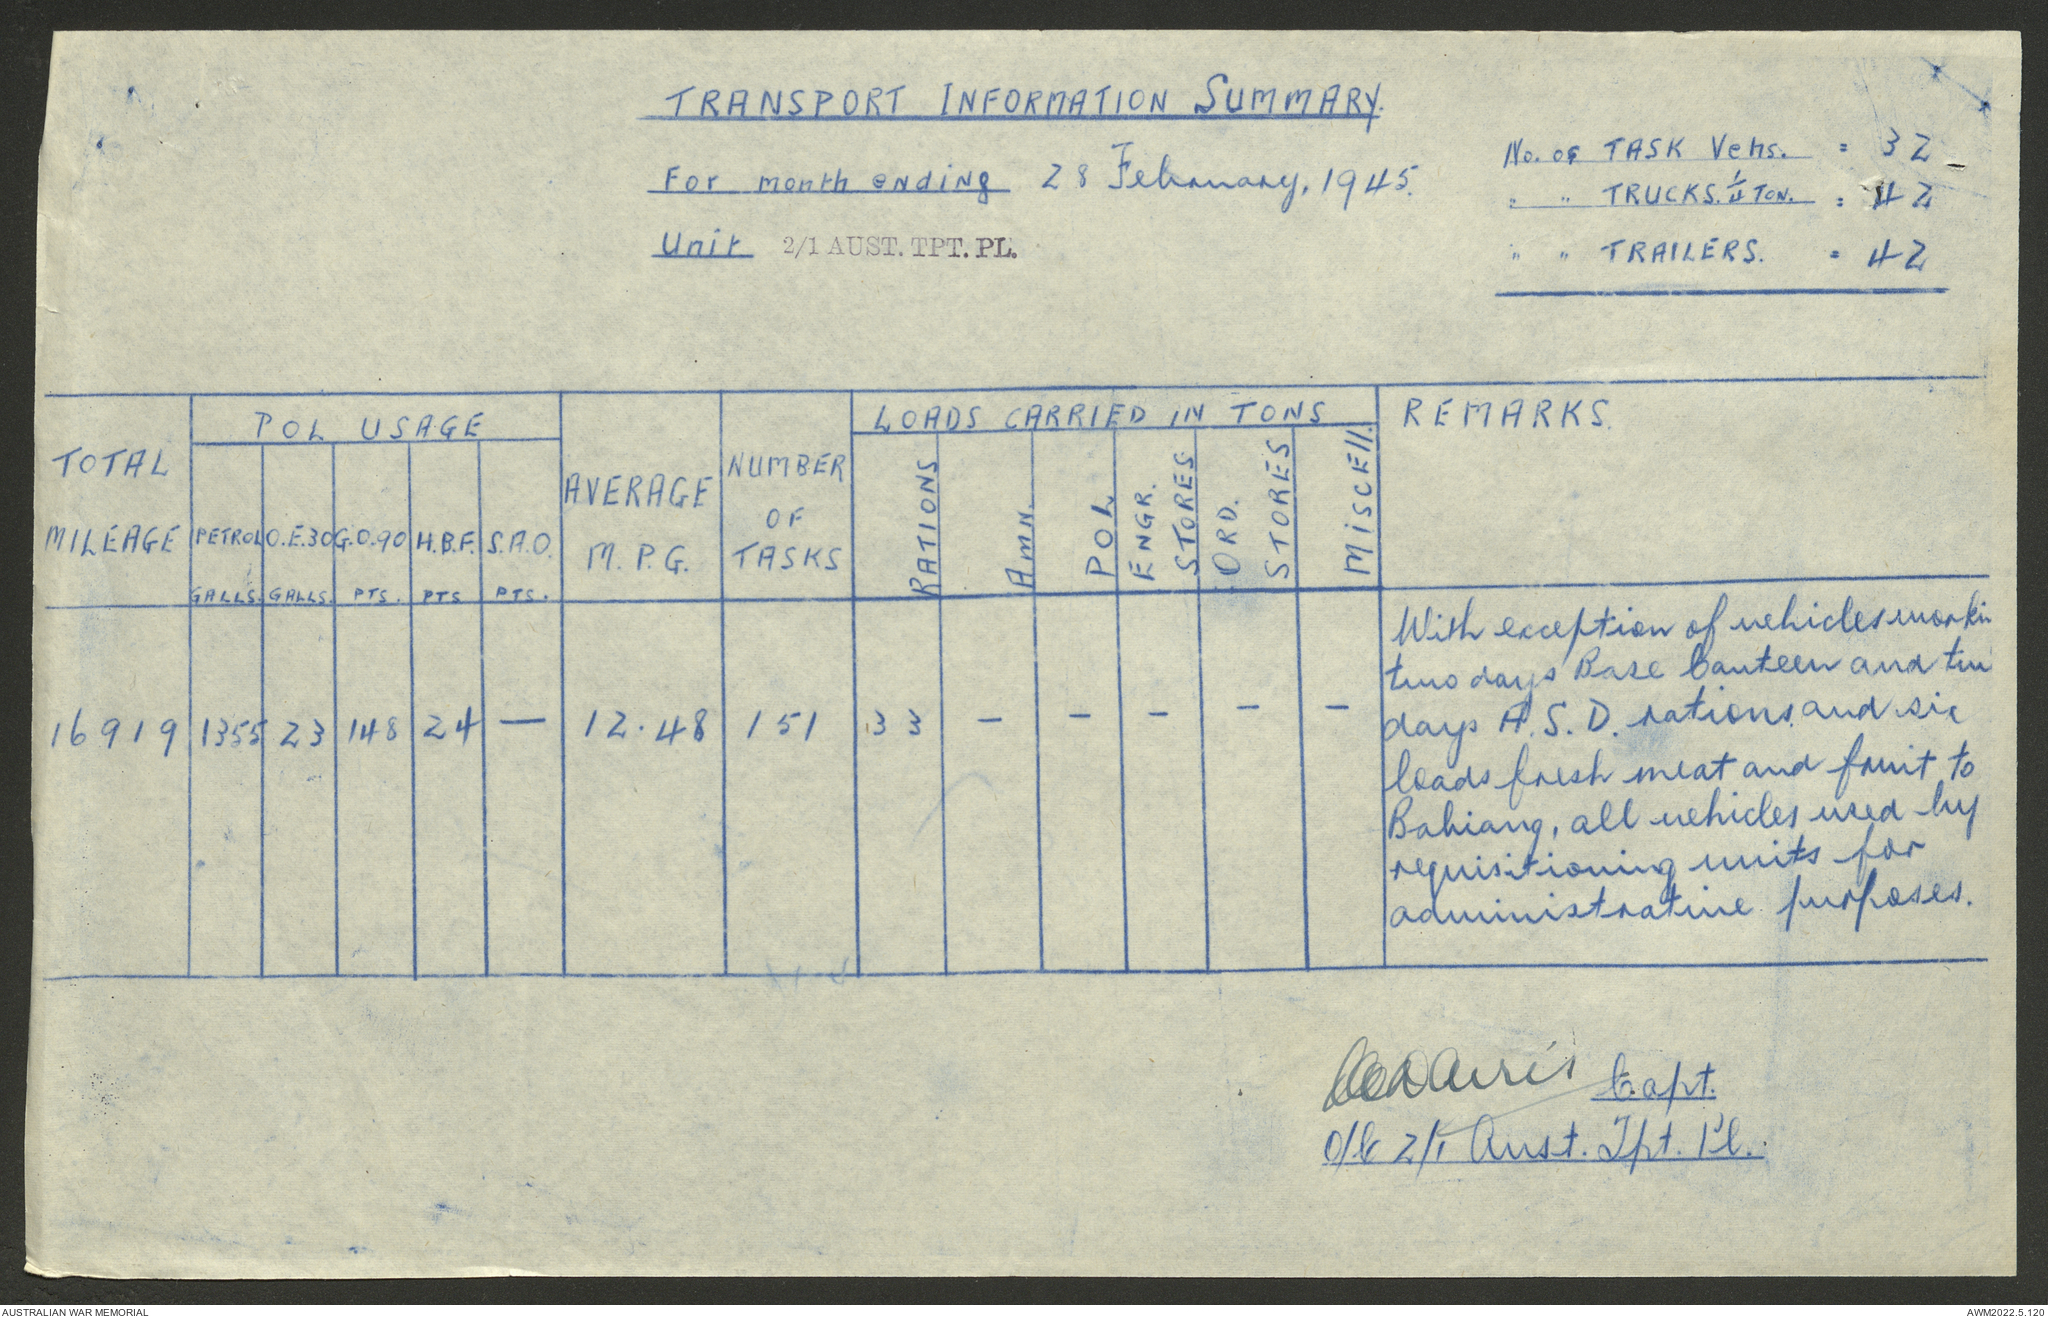 TRANSPORT INFORMATION SUMMARY.
For month ending 28 February, 1945.
Unit 2/1 AUST. TPT. PL.
No. of TASK Vehs. = 32
" " TRUCKS. 1/4 TON. = 42
" " TRAILERS. = 42
TOTAL MILEAGE
POL USAGE
PETROL GALLS.
O.E.30 GALLS.
G.O.90 PTS.
H.B.F. PTS
S.A.O. PTS.
AVERAGE M.P.G.
NUMBER OF TASKS
LOADS CARRIED IN TONS
RATIONS
Amn.
POL
ENGR. STORES
ORD. STORES
MiSCEll.
REMARKS.
16919 1355 23 148 24 — 12.48 151 33 - - - - -
With exception of vehicles workin
two days Base Canteen and
days A.S.D. rations and six
loads fresh meat and fruit to
Babiang, all vehicles used by
requisitioning units for
administrative purposes.
Capt.
O/C 2/1 Aust. Tpt. Pl.
AUSTRALIAN WAR MEMORIAL
AWM2022.5.120